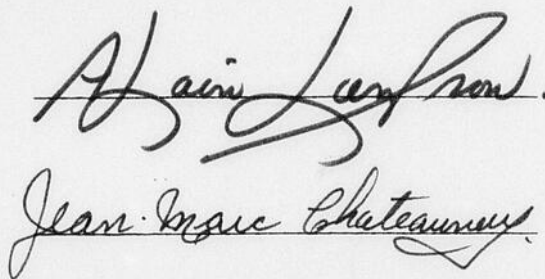 Alain Lampron.
Jean-Marc Chateauneuf